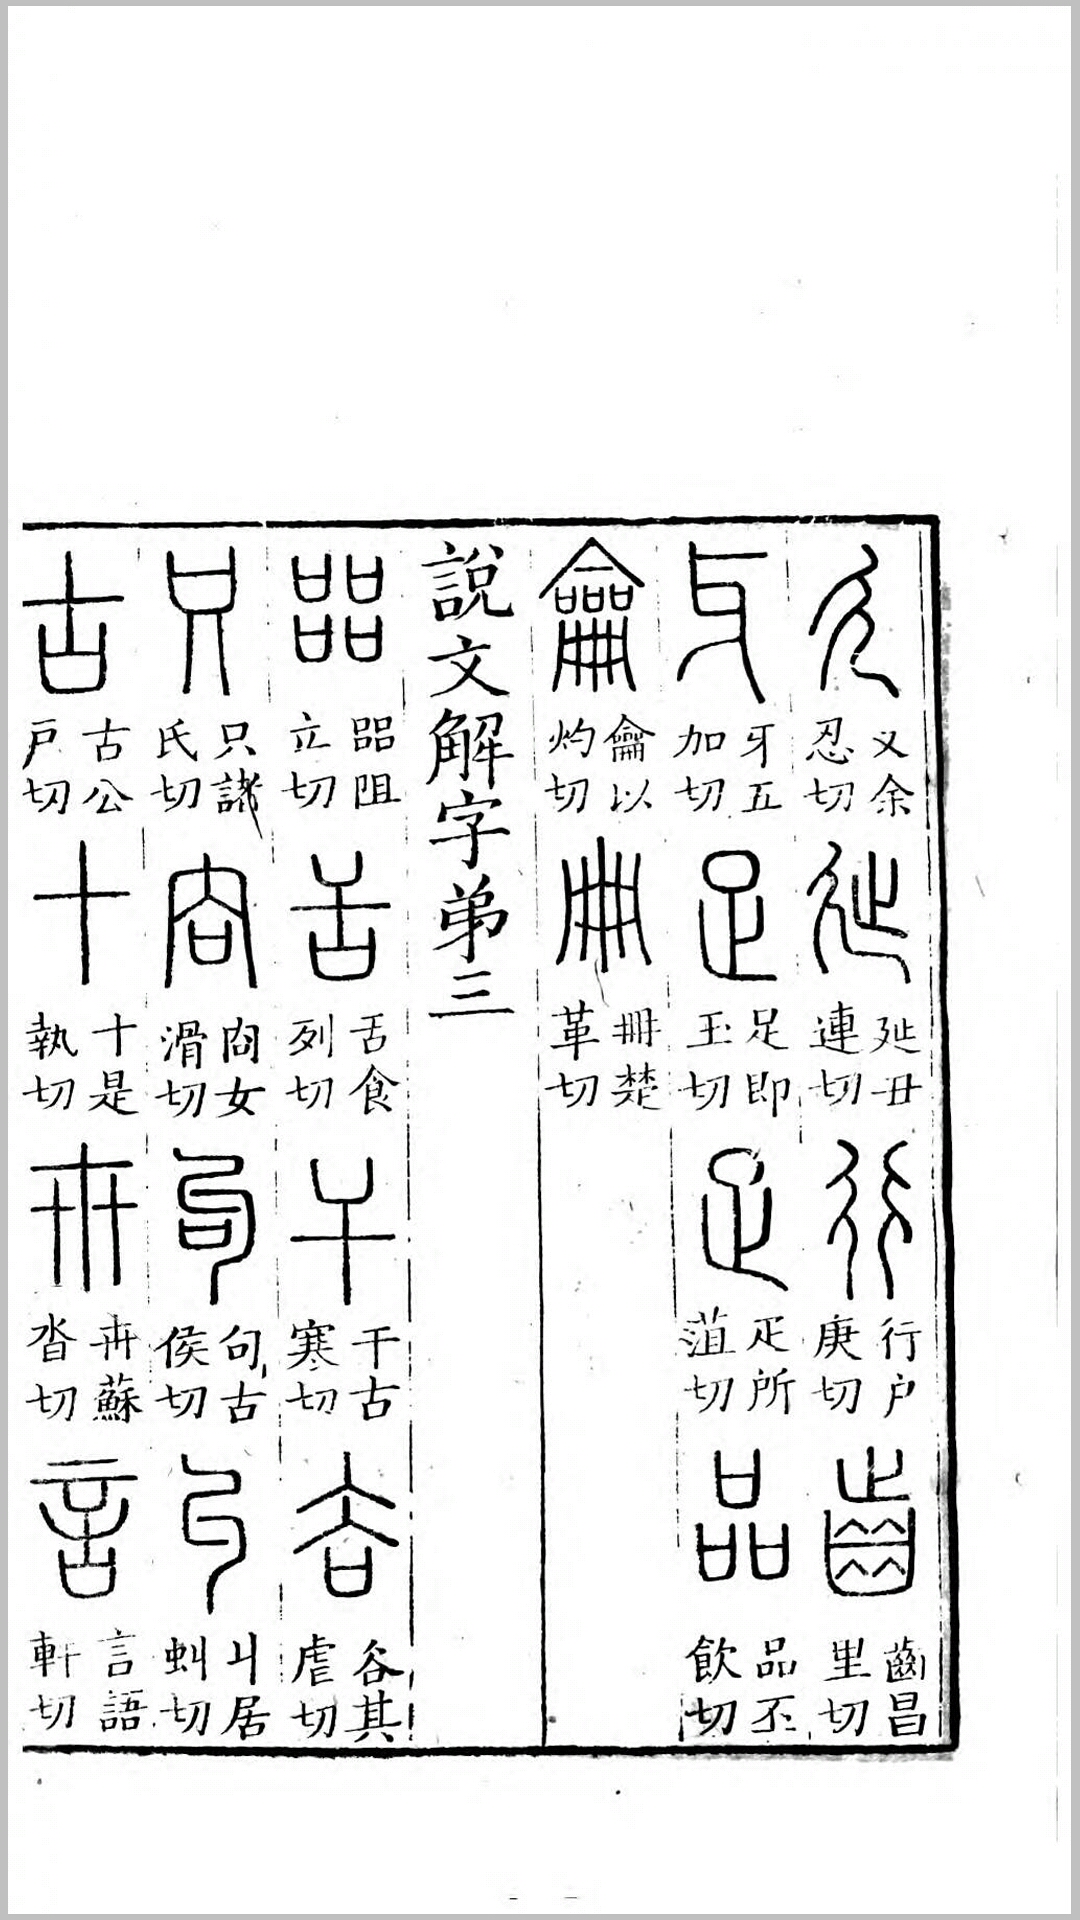 廴 廴余忍切 㢟 㢟丑連切 行 行戶庚切 齒 齒昌里切
牙 牙五加切 足 足即玉切 疋 疋所菹切 品 品丕飲切
龠 龠以灼切 冊 冊楚革切
說文解字弟三
㗊 㗊阻立切 舌 舌食列切 干 干古寒切 𧮫 𧮫其虐切
只 只諸氏切 㕯 㕯女滑切 句 句古侯切 丩 丩居虯切
古 古公戶切 十 十是執切 卅 卅蘇沓切 言 言語軒切